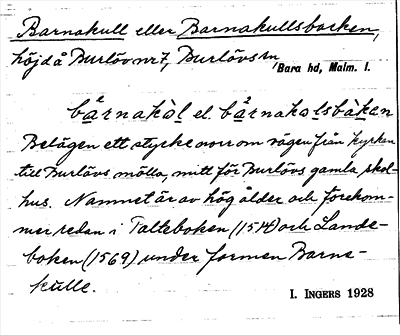 Barnakull eller Barnakullsbacken,
höjd å Burlöv nr 7, Burlövs sn,
Bara hd, Malm. l.
bårnakol el. bårnakolsbakan
Belägen ett stycke norr om vägen från kyrkan
till Burlövs mölla, mitt för Burlövs gamla skol-
hus. Namnet är av hög ålder och förekom-
mer redan i Palteboken (1514) och Lande-
boken (1569) under formen Barne-
kulle.
I. INGERS 1928